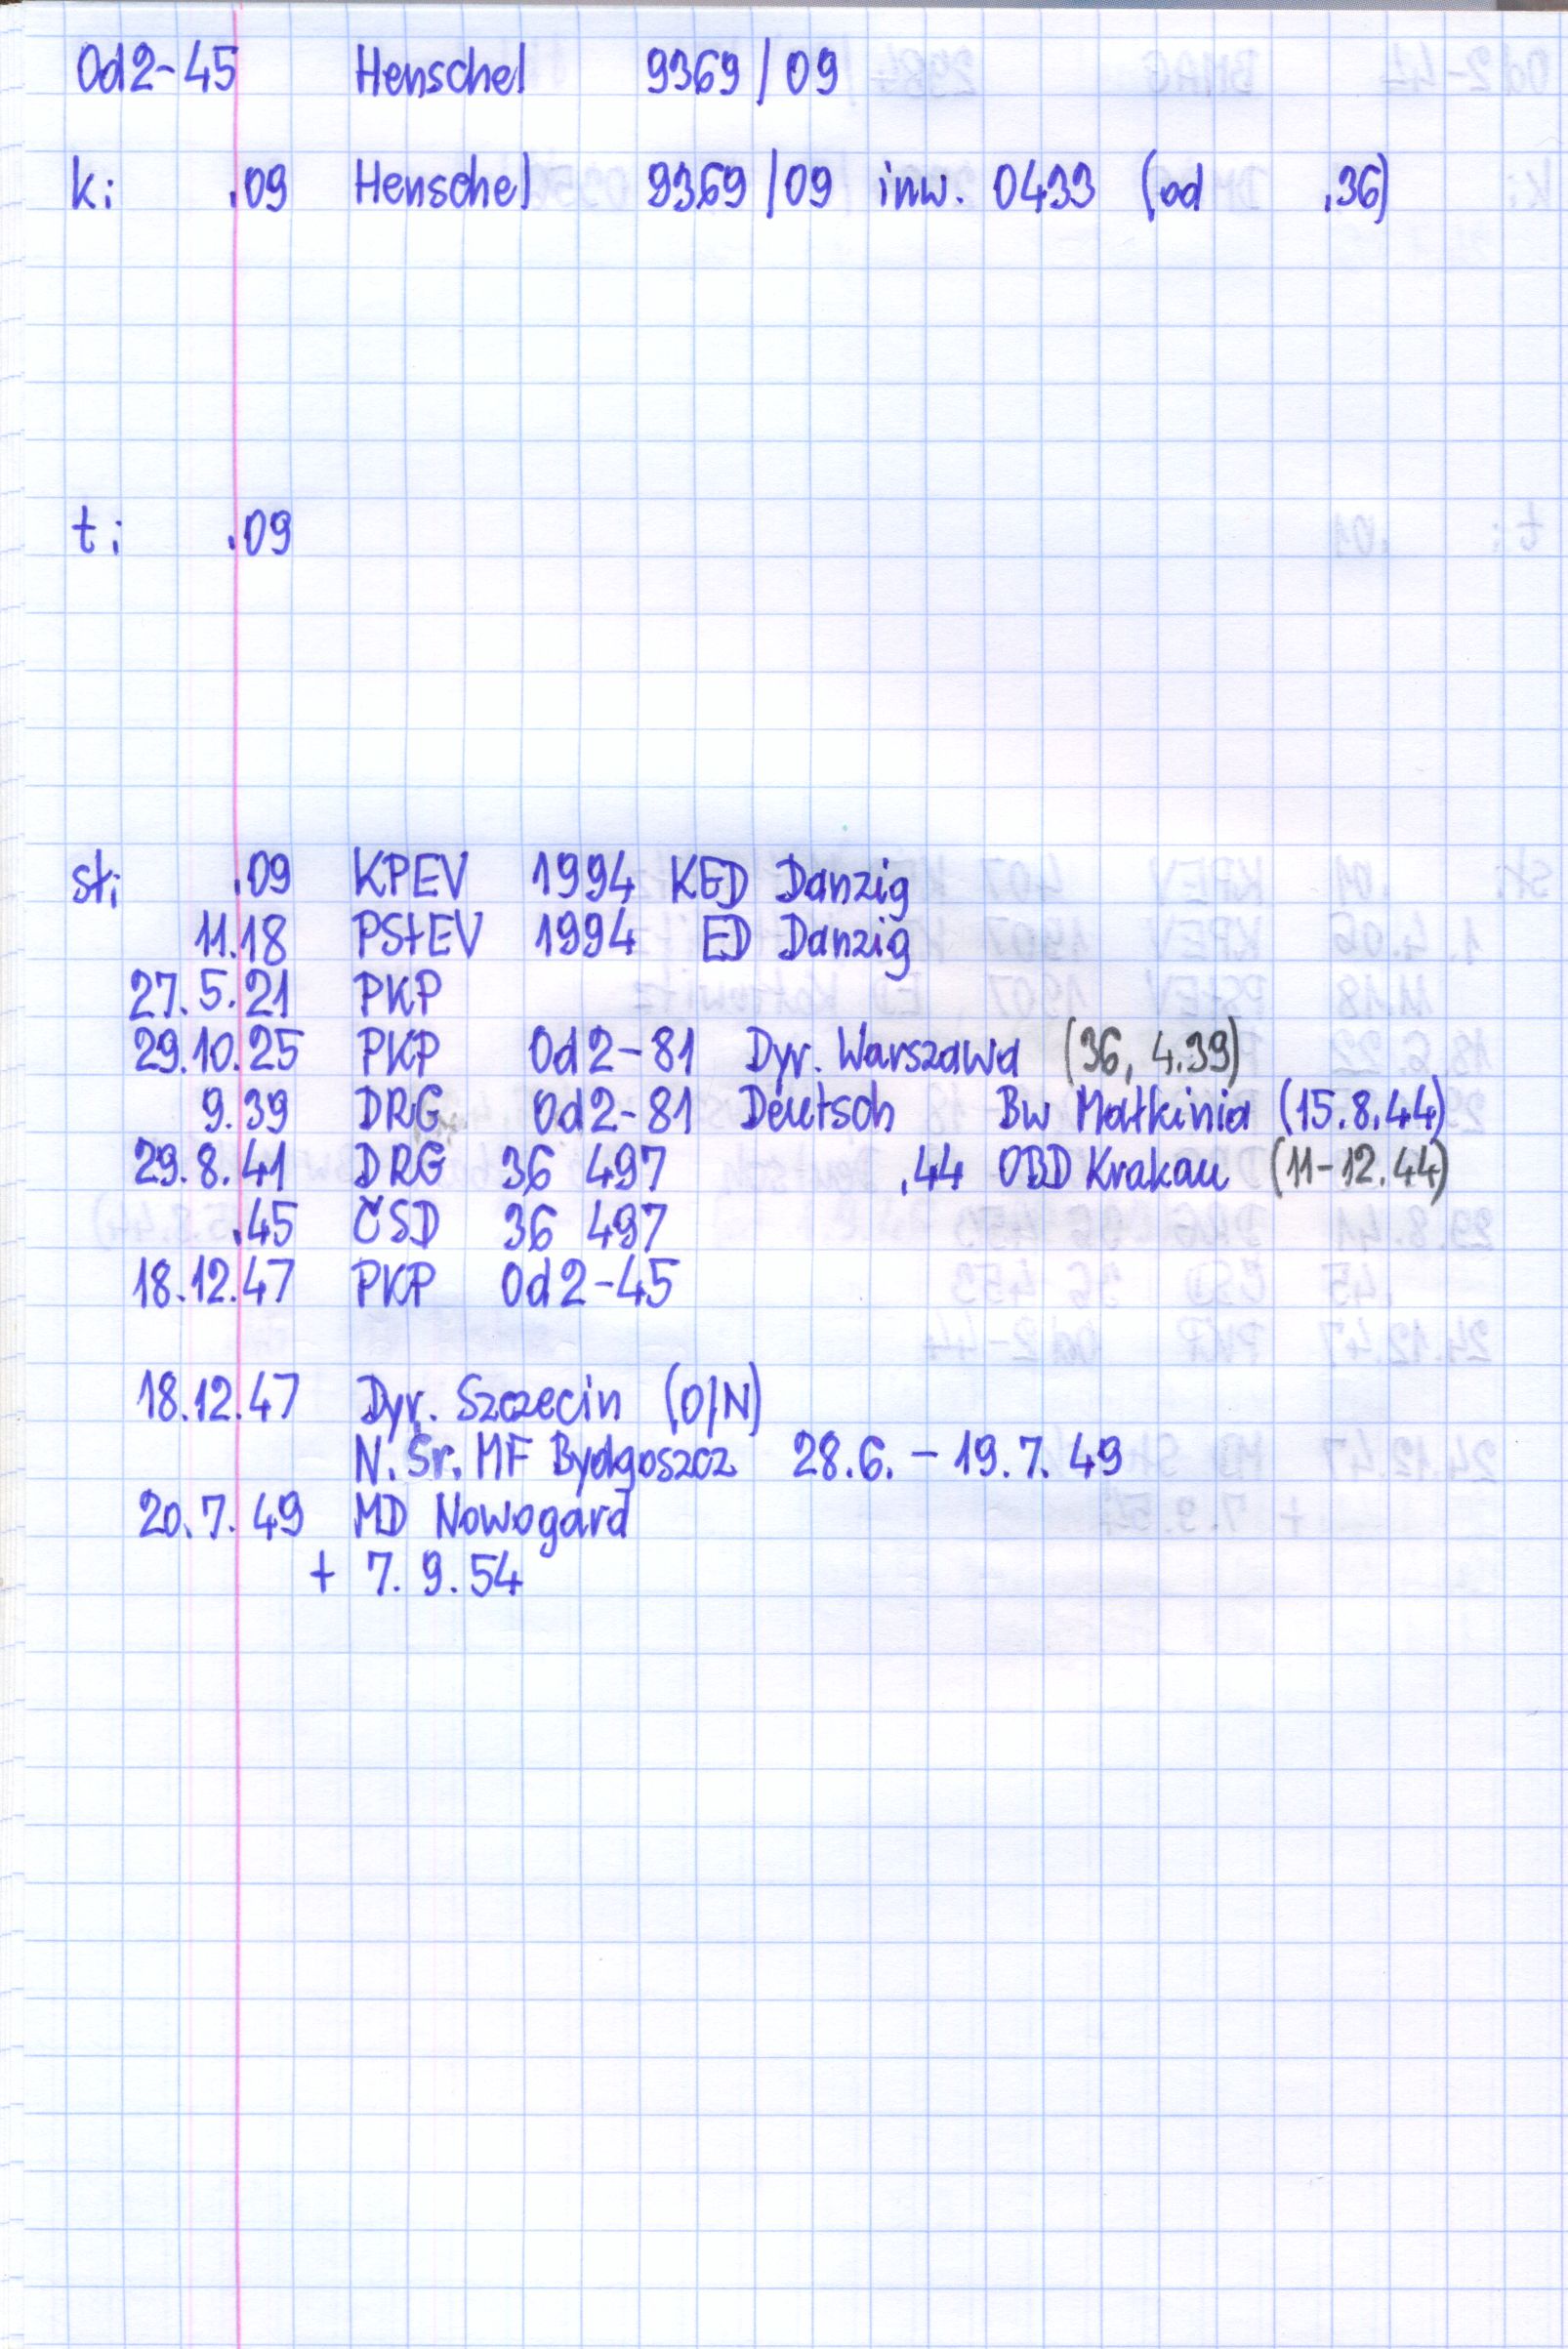 Od2-45 Henschel 9369/09
k: .09 Henschel 9369/09 inw. 0433 (od .36)
t: .09
st: .09 KPEV 1994 KED Danzig
11.18 PStEV 1994 ED Danzig
27.5.21 PKP
29.10.25 PKP Od2-81 Dyr. Warszawa (36, 4.39)
9.39 DRG Od2-81 Deutsch Bw Małkinia (15.8.44)
29.8.41 DRG 36 497 .44 OBD Krakau (11-12.44)
.45 ČSD 36 497
18.12.47 PKP Od2-45
18.12.47 Dyr. Szczecin (O/N)
N. Śr. MF Bydgoszcz 28.6. - 19.7. 49
20.7. 49 MD Nowogard
+ 7. 9. 54